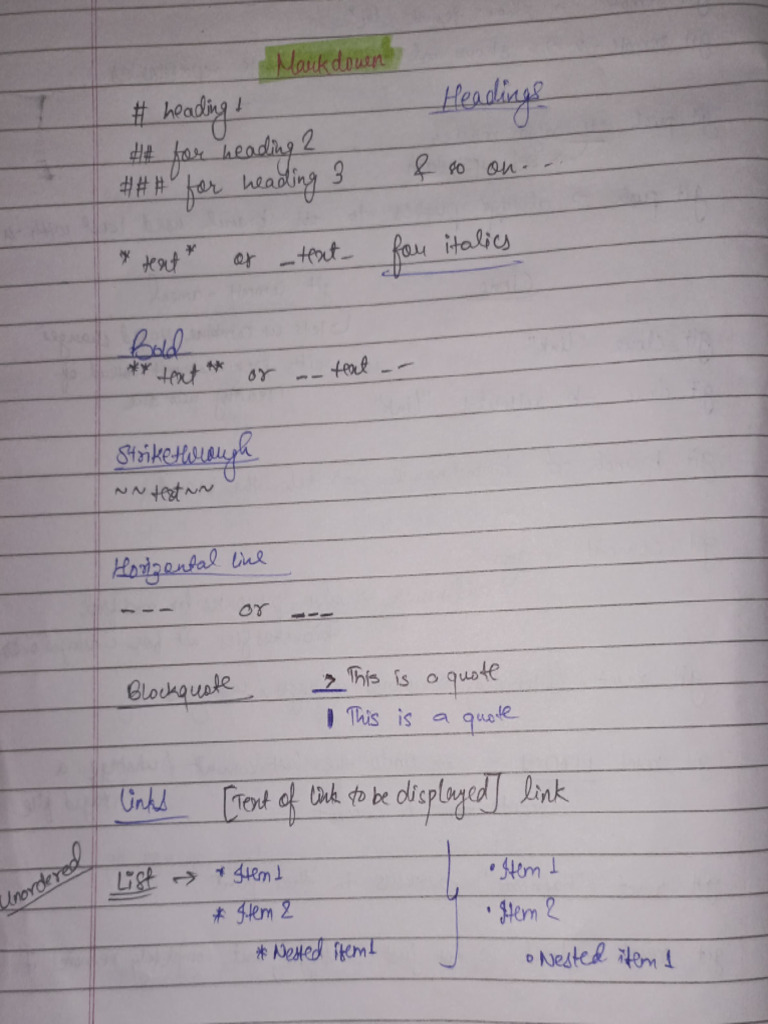 Markdown
# heading 1 Headings
## for heading 2
### for heading 3 & so on - -
* text * or _text_ for italics
Bold
** text ** or __ text __
Strikethrough
~~ text ~~
Horizental line
--- or ___
Blockquote > This is a quote
| This is a quote
Links [Text of link to be displayed] link
Unordered List → * Item 1 • Item 1
* Item 2 • Item 2
* Nested item 1 ◦ Nested item 1